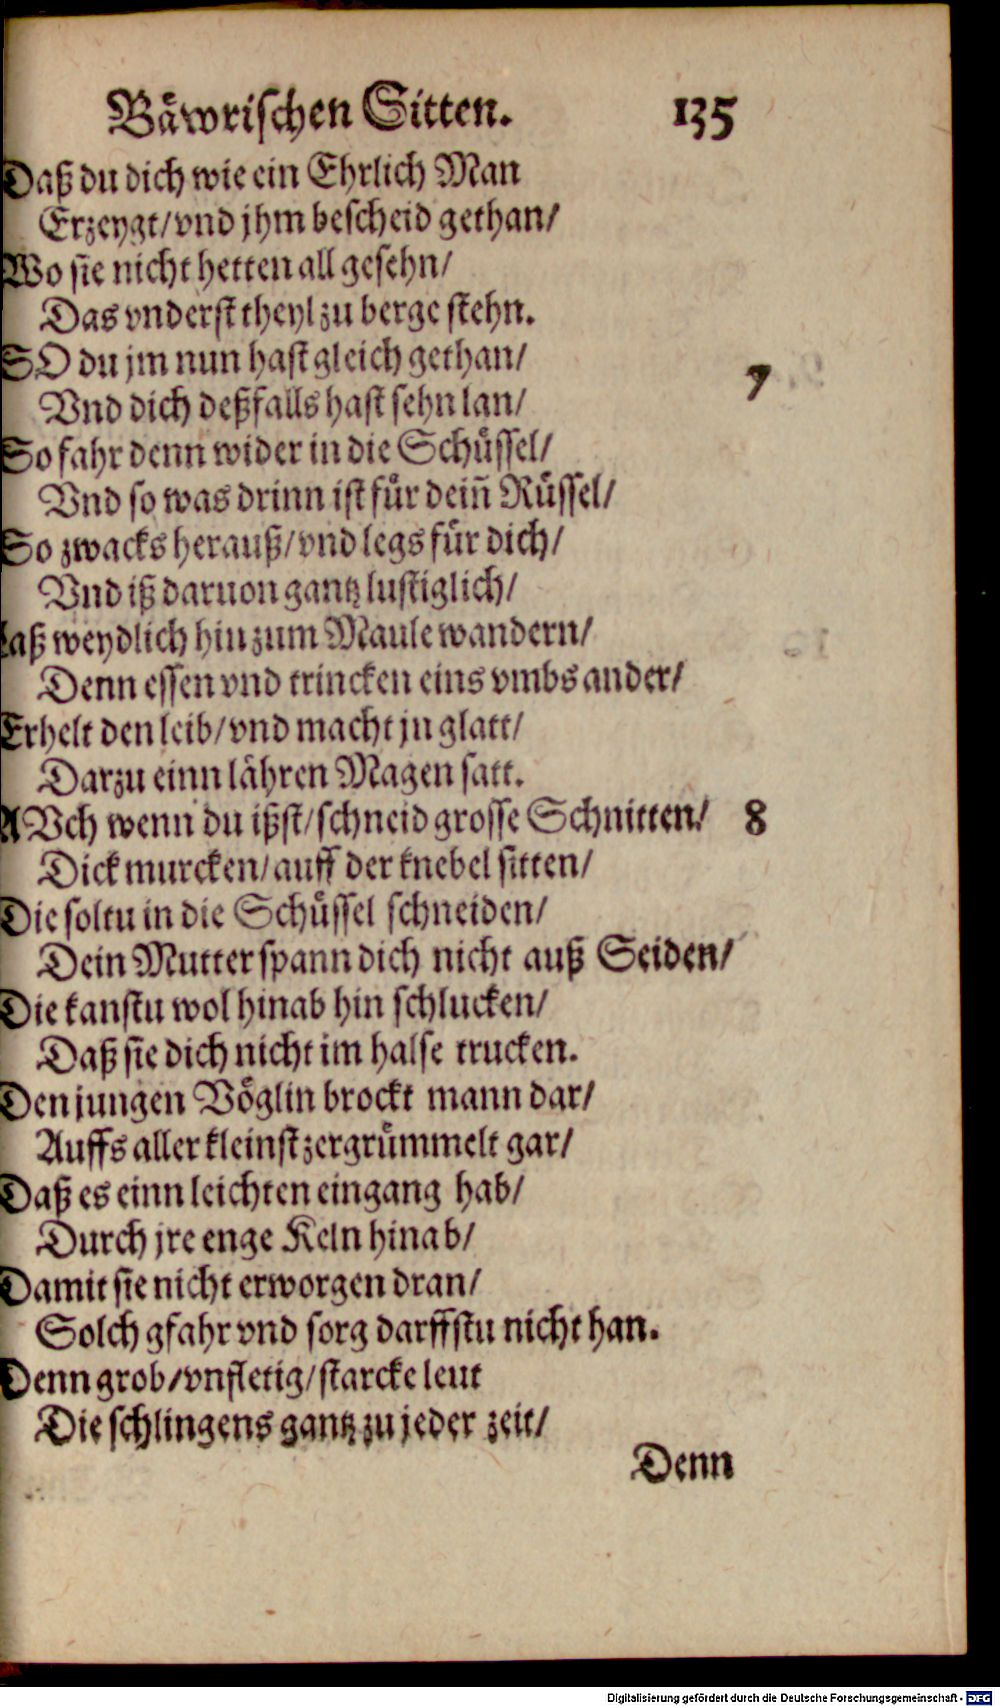 Bäwrischen Sitten. 135
Daß du dich wie ein Ehrlich Man
Erzeygt/ vnd jhm bescheid gethan/
Wo sie nicht hetten all gesehn/
Das vnderst theyl zu berge stehn.
SO du jm nun hast gleich gethan/ 7
Vnd dich deßfalls hast sehn lan/
So fahr denn wider in die Schüssel/
Vnd so was drinn ist für dein̄ Rüssel/
So zwacks herauß/ vnd legs für dich/
Vnd iß daruon gantz lustiglich/
Laß weydlich hin zum Maule wandern/
Denn essen vnd trincken eins vmbs ander/
Erhelt den leib/ vnd macht jn glatt/
Darzu einn lähren Magen satt.
AVch wenn du ißst/ schneid grosse Schnitten/ 8
Dick murcken/ auff der knebel sitten/
Die soltu in die Schüssel schneiden/
Dein Mutter spann dich nicht auß Seiden/
Die kanstu wol hinab hin schlucken/
Daß sie dich nicht im halse trucken.
Den jungen Vöglin brockt mann dar/
Auffs aller kleinst zergrümmelt gar/
Daß es einn leichten eingang hab/
Durch jre enge Keln hinab/
Damit sie nicht erworgen dran/
Solch gfahr vnd sorg darffstu nicht han.
Denn grob/ vnfletig/ starcke leut
Die schlingens gantz zu jeder zeit/
Denn
Digitalisierung gefördert durch die Deutsche Forschungsgemeinschaft - DFG